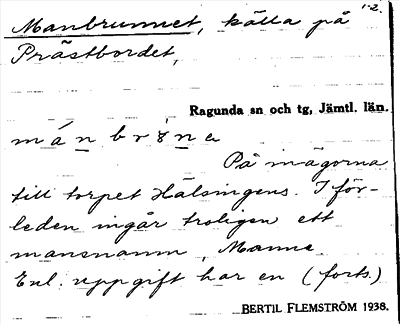 Manbrunnet, källa på 1-2.
Prästbordet,
Ragunda sn och tg, Jämtl. län.
På inägorna
till torpet Hälsingens. I för-
leden ingår troligen ett
mansnamn, Manne
Enl. uppgift har en (forts.)
BERTIL FLEMSTRÖM 1938.